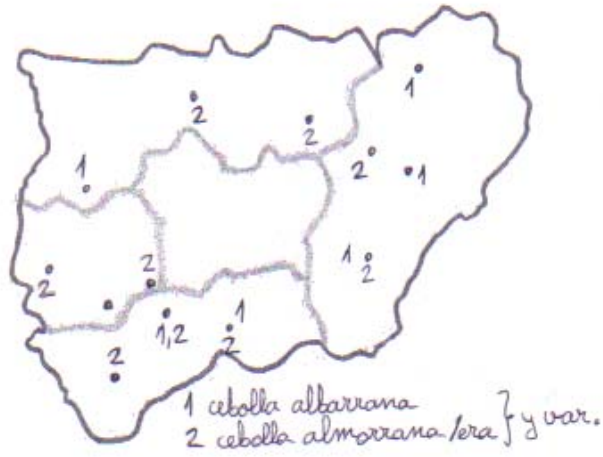 1
2
2
2
1
1
1
2
2
2
1
1,2
2
2
1 cebolla albarrana
2 cebolla almorrana/era } y var.